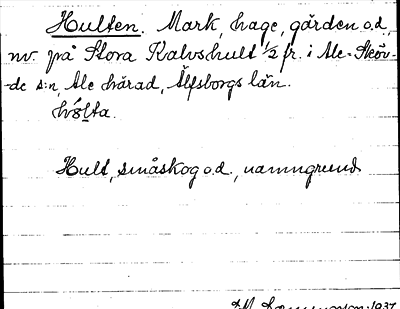 Hulten. Mark, hage, gården o.d.,
nv. på Stora Kalvshult 1/2 fr. i Ale-Sköv-
-de s:n, Ale härad, Älfsborgs län.
Hult, småskog o.d., namngrund
1937